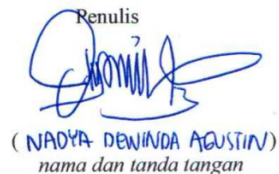 Penulis
( NADYA DEWINDA AGUSTIN)
nama dan tanda tangan